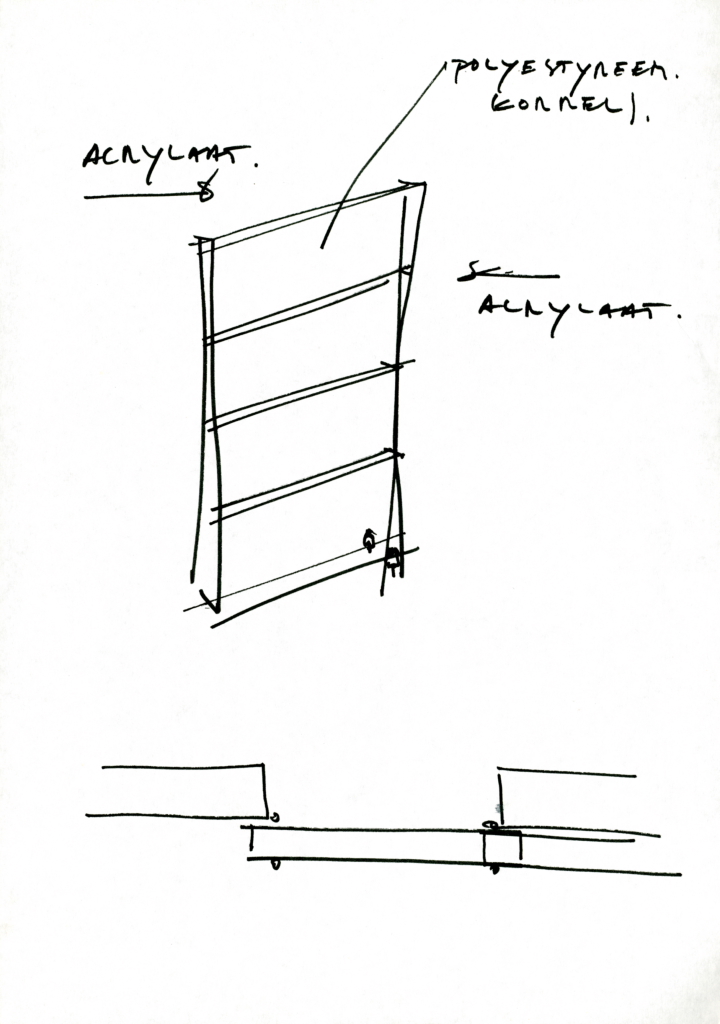 POLYESTYREEN.
KORREL).
ACRYLAAT.
ACRYLAAT.